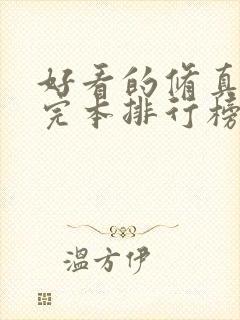 好看的脩真
完本排行榜
溫方伊